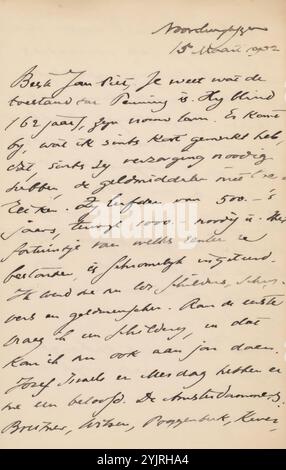 Noordwijk
15 Maart 1902
Beste Jan Piet, Je weet wat de
toestand van Penning is. Hy blind
162 jaar, zyn vrouw lam. Er komt
by, wat ik sints kort gemerkt heb
dat, sints zy verzorging noodig
hebben, de geldmiddelen niet
Ze leefden van 500.- 's
jaars, terwyl 1000.- noodig is. Het
fortuintje van welks rente ze
bestonden, is schromelyk ingeteerd.
Ik wend me nu tot schilders, schry-
vers en geldmenschen. Aan de eerste
vraag ik een schildery, en dat
kan ik nu ook aan jou doen.
Jozef Israels en Mesdag hebben er
me een beloofd. De Amsterdammers
Breitner, Witsen, Poggenbeek, Kever
alamy
Image ID: 2YJRHA4
www.alamy.com